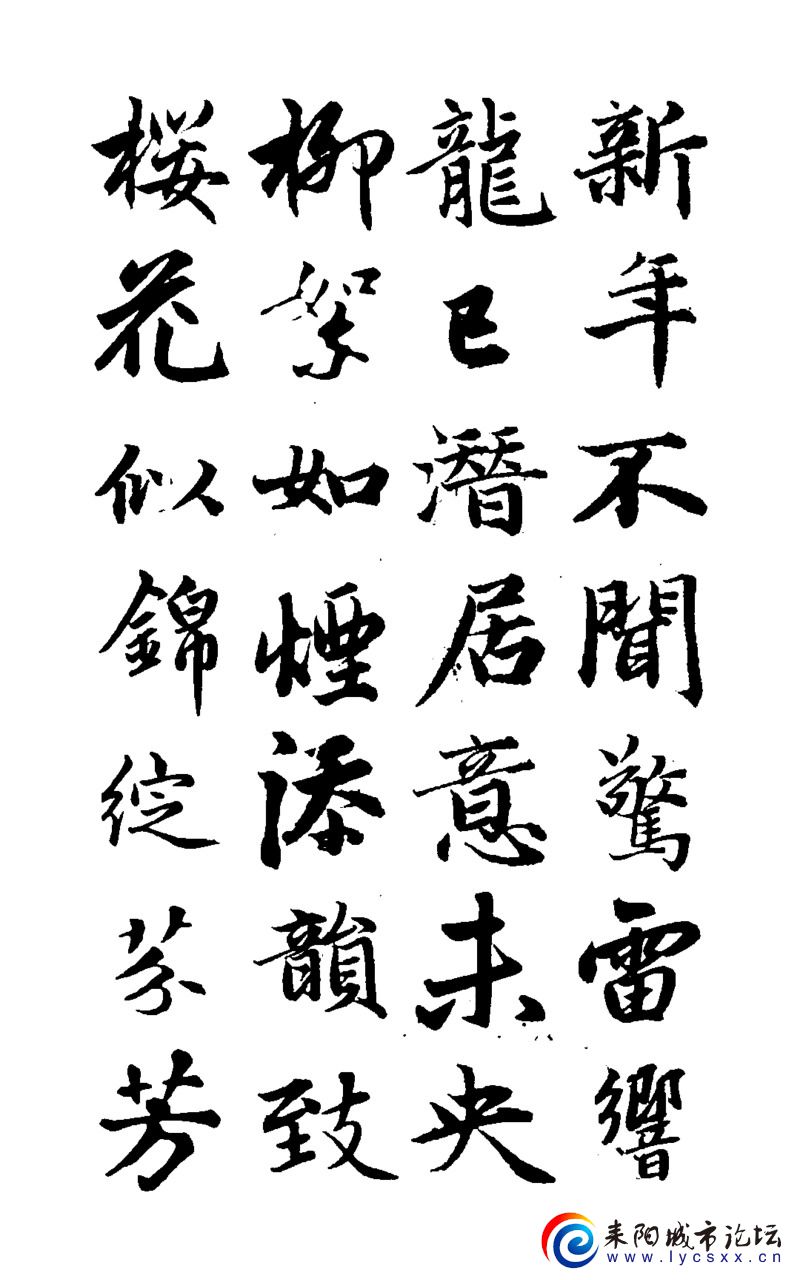 新年不聞驚雷響
龍已潛居意未央
柳絮如煙添韻致
桜花似錦綻芬芳
耒阳城市论坛
www.lycsxx.cn